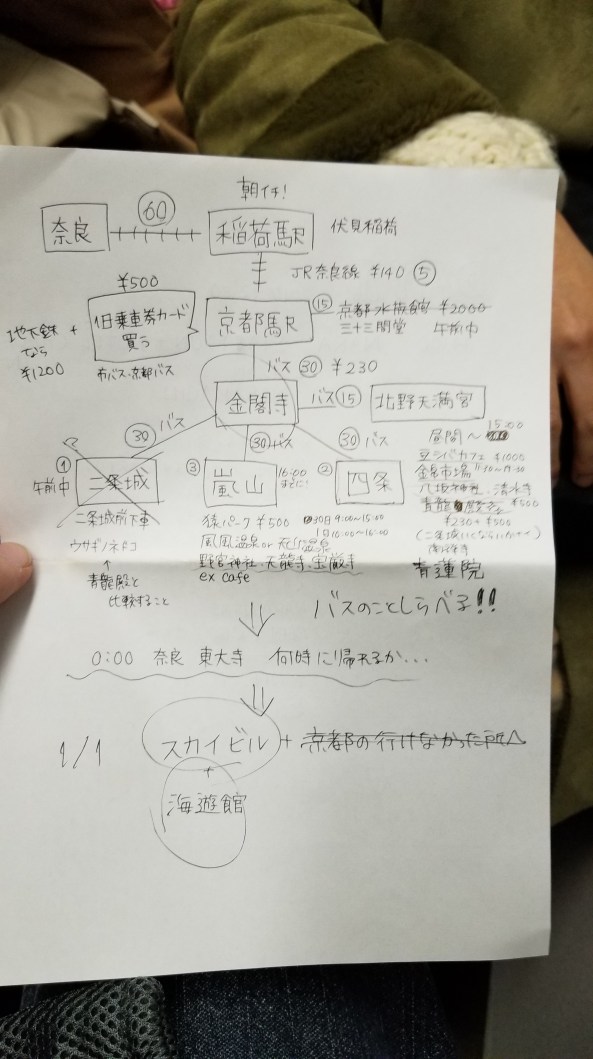 朝イチ!
奈良 60 稲荷駅 伏見稲荷
JR奈良線 ¥140 5
¥500
地下鉄 + 1日乗車券カード
なら 買う
¥1200 市バス・京都バス
京都駅 15 京都水族館 ¥2000
三十三間堂 午前中
バス 30 ¥230
金閣寺 バス 15 北野天満宮
30 バス 30 バス 30 バス
1 午前中 二条城
3 嵐山 16:00までに!
2 四条
昼間〜 15:00
豆シバカフェ ¥1000
金錦市場
八坂神社、清水寺
青龍殿 ¥500
¥230+¥500
二条城前下車
ウサギノネドコ
↑
青龍殿と
比較すること
猿パーク ¥500 30日 9:00〜15:00
1日 10:00〜16:00
風風温泉or
野宮神社・天龍寺・宝厳寺
ex cafe
青蓮院
⇓ バスのことしらべる!!
0:00 奈良 東大寺 何時に帰れるか...
⇓
1/1 スカイビル + 京都の行けなかった所へ
+
海遊館